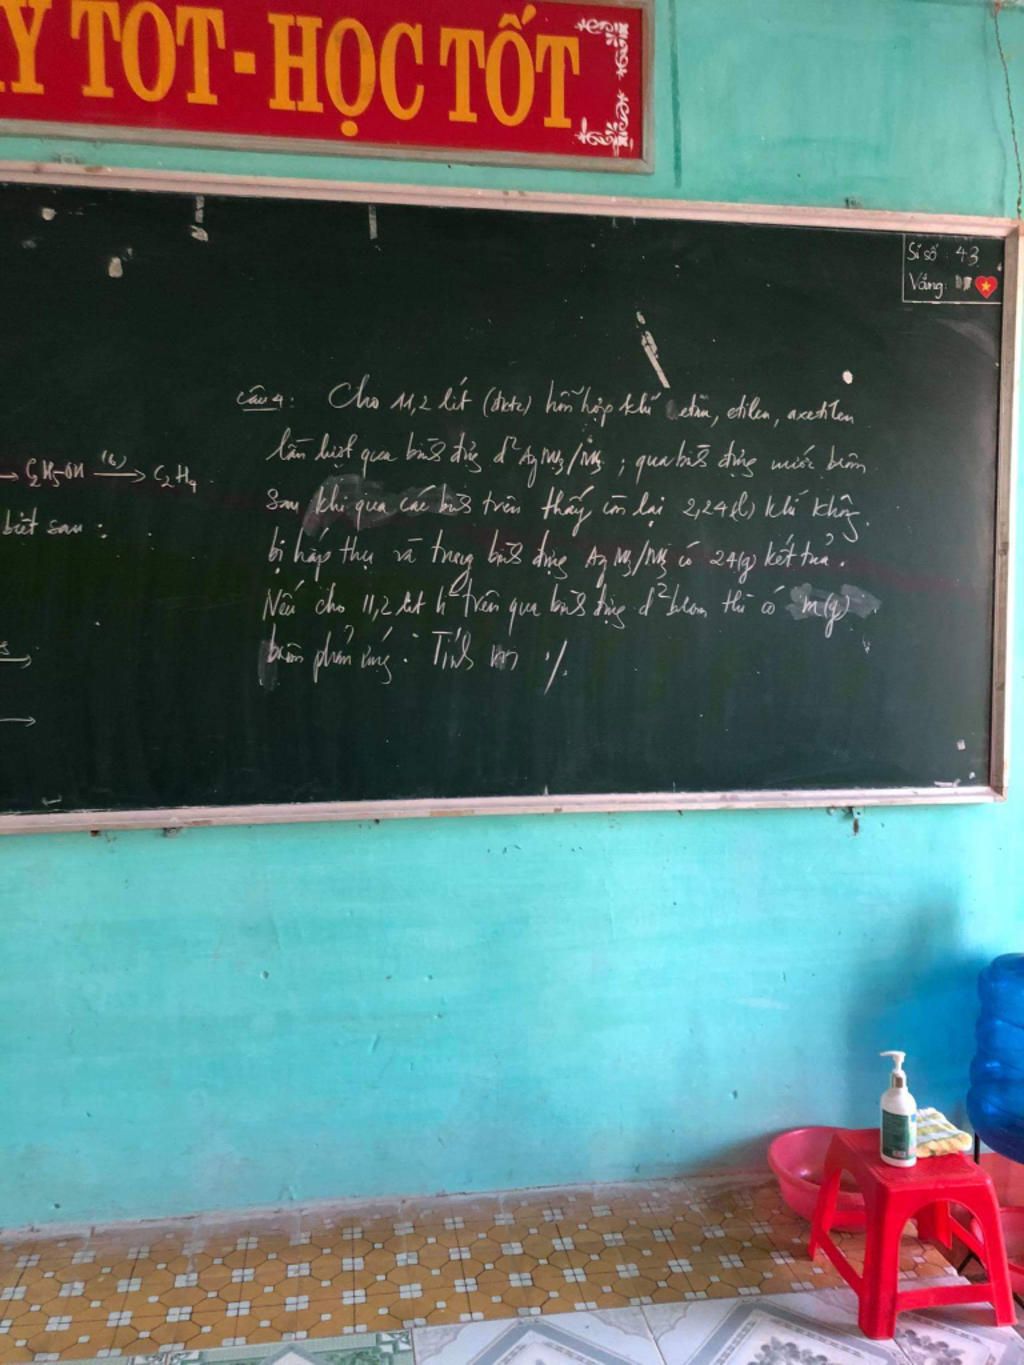 Y TOT - HỌC TỐT
Sĩ số : 43
Vắng:
Câu 4: Cho 11,2 lít (đktc) hỗn hợp khí etan, etilen, axetilen
lần lượt qua bình đựng d² AgNO₃/NH₃ ; qua bình đựng nước brôm
Sau khi qua các bình trên thấy còn lại 2,24(l) khí không
bị hấp thụ và trong bình đựng AgNO₃/NH₃ có 24(g) kết tủa.
Nếu cho 11,2 lít h² trên qua bình đựng d² brom thì có m(g)
brôm phản ứng. Tính m ./.
→ C₂H₅-OH (6) → C₂H₄
biết sau :